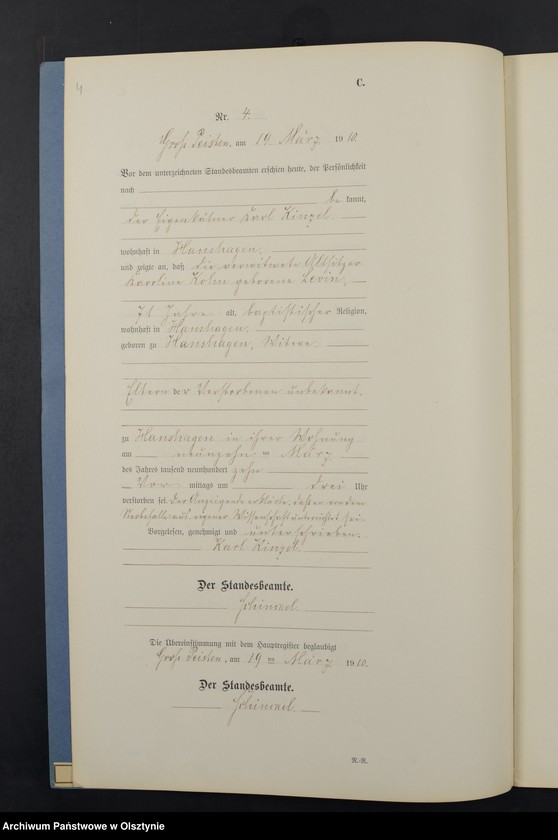 4
C.
Nr. 4.
Groß Peisten, am 19 März 1910.
Vor dem unterzeichneten Standesbeamten erschien heute, der Persönlichkeit
nach
be kannt,
der Eigenkätner Karl Kinzel.
wohnhaft in Hanshagen,
und zeigte an, daß die verwitwete Altsitzer
Karoline Kohn geborene Levin,
71 Jahre alt, baptistischer Religion,
wohnhaft in Hanshagen,
geboren zu Hanshagen, Witwe
Eltern der Verstorbenen unbekannt.
zu Hanshagen in ihrer Wohnung
am neunzehn ten März
des Jahres tausend neunhundert zehn
Vor mittags um drei Uhr
verstorben sei. Der Anzeigende erklärte, daß er von dem
Sterbefalle aus eigener Wissenschaft unterrichtet sei.
Vorgelesen, genehmigt und unterschrieben.
Karl Kinzel.
Der Standesbeamte.
Schimmel.
Die Übereinstimmung mit dem Hauptregister beglaubigt
Groß Peisten, am 19 ten März 1910.
Der Standesbeamte.
Schimmel.
R.-R.
Archiwum Państwowe w Olsztynie